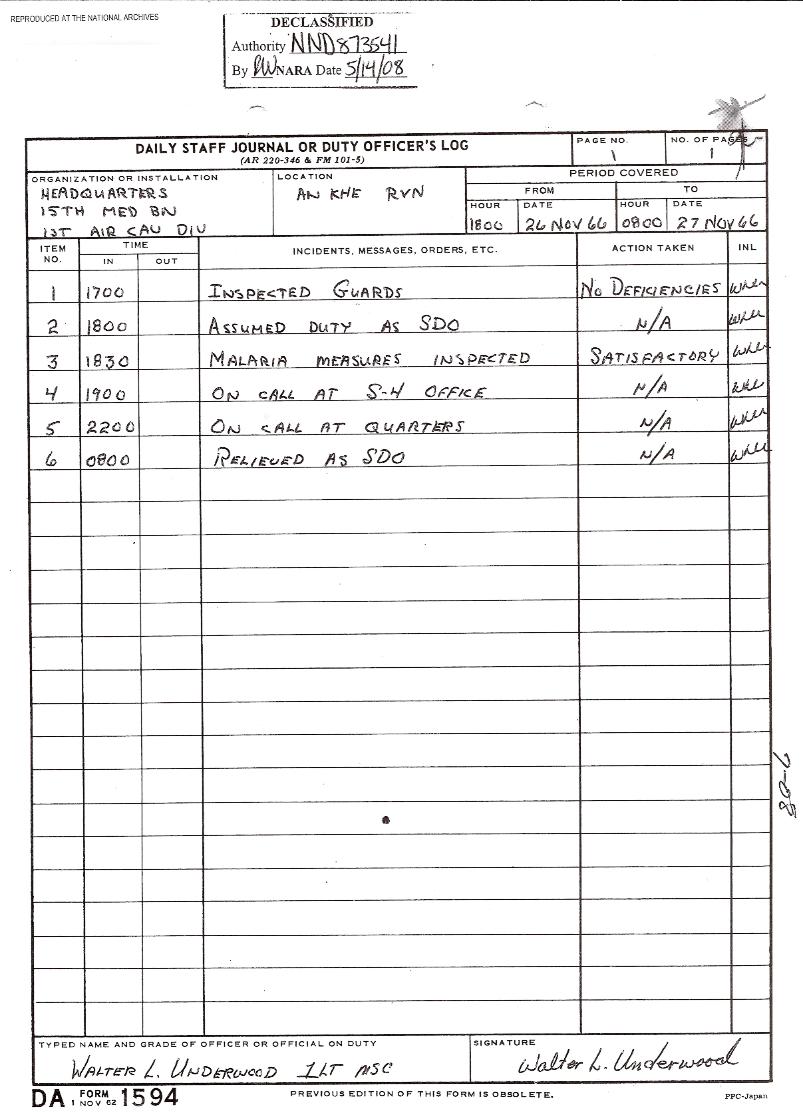 REPRODUCED AT THE NATIONAL ARCHIVES
DECLASSIFIED
Authority NND873541
By NARA Date 5/14/08
DAILY STAFF JOURNAL OR DUTY OFFICER'S LOG
(AR 220-346 & FM 101-5)
PAGE NO.
1
NO. OF PAGES
1
ORGANIZATION OR INSTALLATION
HEADQUARTERS
15TH MED BN
1ST AIR CAV DIV
LOCATION
AN KHE RVN
PERIOD COVERED
FROM TO
HOUR DATE HOUR DATE
1800 26 NOV 66 0800 27 NOV 66
ITEM NO. TIME INCIDENTS, MESSAGES, ORDERS, ETC. ACTION TAKEN INL
IN OUT
1 1700 INSPECTED GUARDS NO DEFICIENCIES WLU
2 1800 ASSUMED DUTY AS SDO N/A WLU
3 1830 MALARIA MEASURES INSPECTED SATISFACTORY WLU
4 1900 ON CALL AT S-4 OFFICE N/A WLU
5 2200 ON CALL AT QUARTERS N/A WLU
6 0800 RELIEVED AS SDO N/A WLU
7-08
TYPED NAME AND GRADE OF OFFICER OR OFFICIAL ON DUTY
WALTER L. UNDERWOOD 1LT MSC
SIGNATURE
Walter L. Underwood
DA FORM 1 NOV 62 1594
PREVIOUS EDITION OF THIS FORM IS OBSOLETE.
PPC-Japan